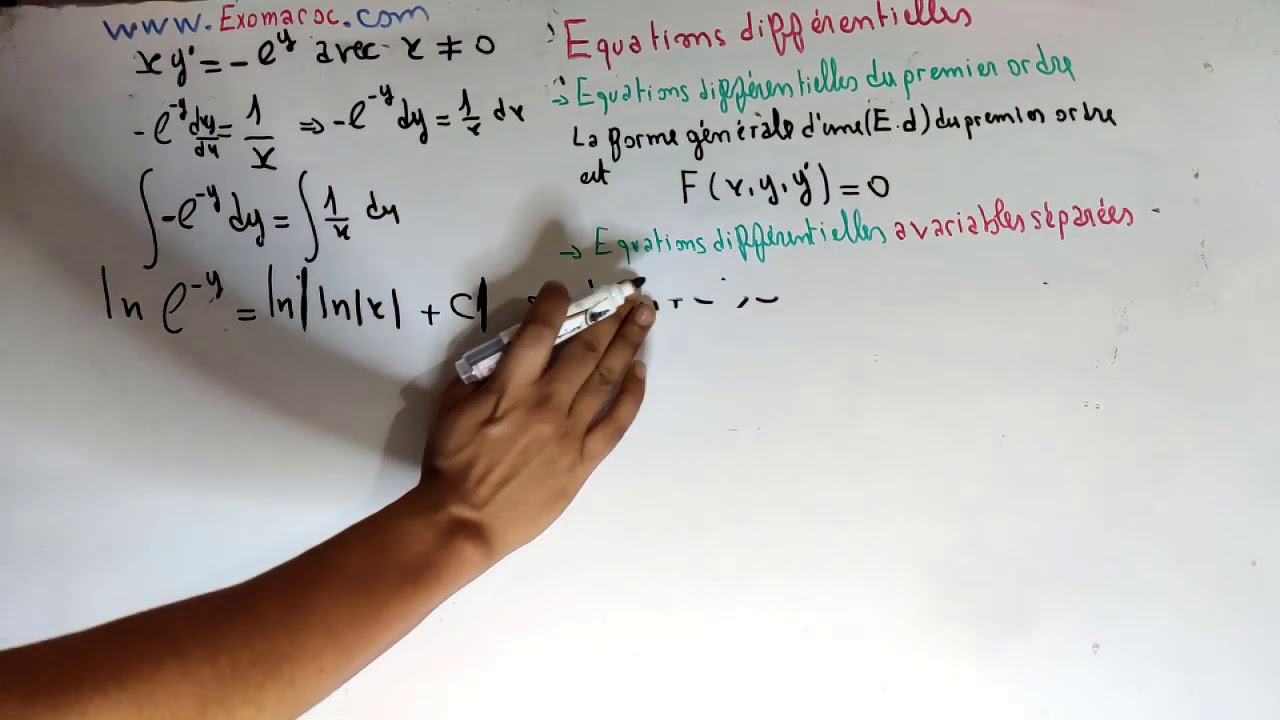 www.Exomaroc.com
xy' = -e^y avec x ≠ 0
-e^-y dy/dx = 1/x ⇒ -e^-y dy = 1/x dx
∫ -e^-y dy = ∫ 1/x dx
ln e^-y = ln| ln|x| + C|
Equations différentielles
→ Equations différentielles du premier ordre
La forme générale d'une (E.d) du premier ordre
est F(x, y, y') = 0
→ Equations différentielles a variables séparées